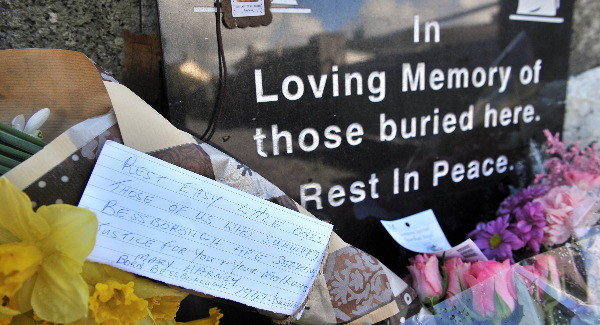 In
Loving Memory of
those buried here.
Rest In Peace.
REST EASY LITTLE ONES
THOSE OF US WHO SURVIVED
BESSBOROUGH ARE
JUSTICE FOR YOU & YOUR MOTHERS
MARY HARNEY
BORN BESSBOROUGH 1949